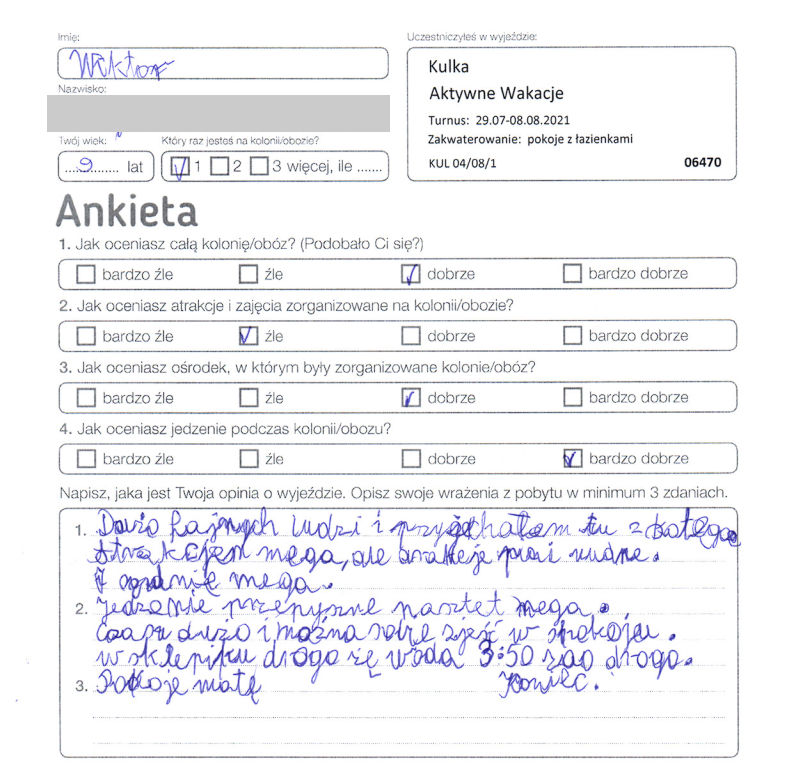 Imię:
Wiktor
Nazwisko:
Twój wiek:
Który raz jesteś na kolonii/obozie?
....9........ lat
1 2 3 więcej, ile .......
Uczestniczyłeś w wyjeździe:
Kulka
Aktywne Wakacje
Turnus: 29.07-08.08.2021
Zakwaterowanie: pokoje z łazienkami
KUL 04/08/1 06470
Ankieta
1. Jak oceniasz całą kolonię/obóz? (Podobało Ci się?)
bardzo źle źle dobrze bardzo dobrze
2. Jak oceniasz atrakcje i zajęcia zorganizowane na kolonii/obozie?
bardzo źle źle dobrze bardzo dobrze
3. Jak oceniasz ośrodek, w którym były zorganizowane kolonie/obóz?
bardzo źle źle dobrze bardzo dobrze
4. Jak oceniasz jedzenie podczas kolonii/obozu?
bardzo źle źle dobrze bardzo dobrze
Napisz, jaka jest Twoja opinia o wyjeździe. Opisz swoje wrażenia z pobytu w minimum 3 zdaniach.
1. Dużo fajnych ludzi i przyjechałem tu z
mega, ale nudne.
mega.
2. Jedzenie przepyszne pasztet mega.
czasu dużo i można sobie zjeść w spokoju.
w sklepiku drogo woda 3:50 drogo.
3. Pokoje małe koniec.